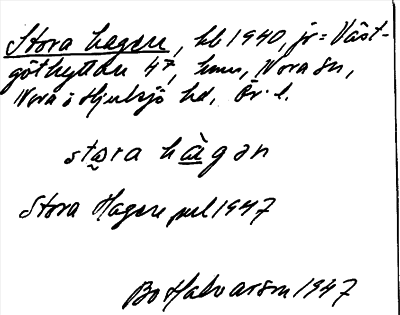 Stora hagen, hb 1940, jr = Väst-
göthyttan 4⁷, hmn, Nora sn,
Nora o Hjulsjö hd, Ör. l.
stora hàgən
Stora Hagen pul 1947
Bo Halvarson 1947